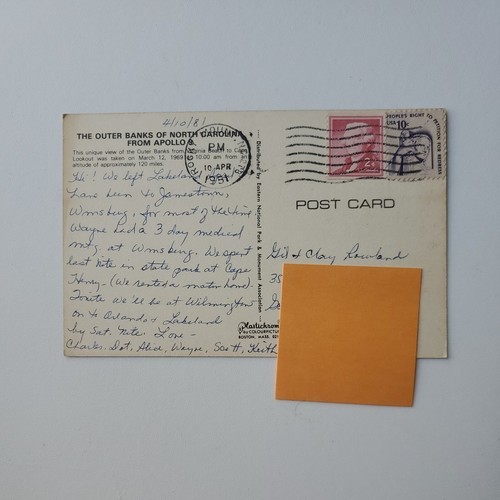 4/10/81
THE OUTER BANKS OF NORTH CAROLINA
FROM APOLLO 9
This unique view of the Outer Banks from Virginia Beach to Cape
Lookout was taken on March 12, 1969 10:00 am from an
altitude of approximately 120 miles.
Hi! We left Lakeland
have been to Jamestown,
Wmsburg, for most of the time.
Wayne had a 3 day medical
mtg. at Wmsburg. We spent
last nite in state park at Cape
Henry - (We rented a motor home).
Tonite we'll be at Wilmington
on to Orlando & Lakeland
by Sat. Nite. Love -
Charles, Dot, Alice, Wayne, Scott, Keith
ROCKY MOUNT
PM
10 APR
1981
Distributed by Eastern National Park & Monument Association
Plastichrome
by COLOURPICTURE
BOSTON, MASS. 02
PEOPLE'S RIGHT TO PETITION FOR REDRESS
USA 10c
POST CARD
Gil & Clay Rowland
35